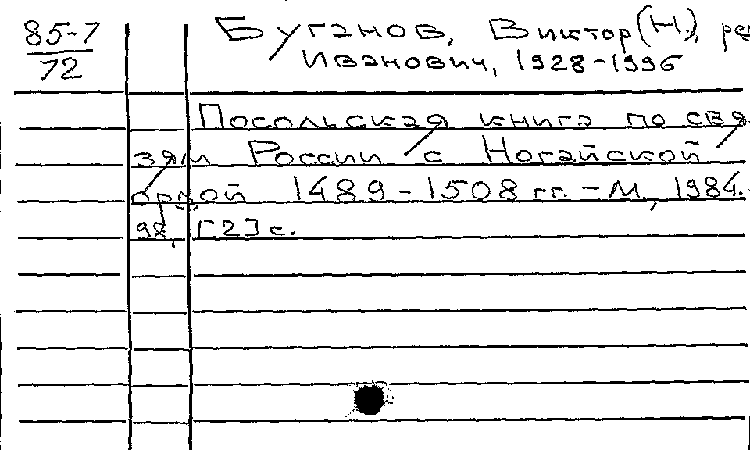 85-7
72
Буганов, Виктор (И), ре
Иванович, 1928-1996
Посольская книга по свя
зям России с Ногайской
ордой 1489-1508 гг. - М., 1984. -
98, [2] с.